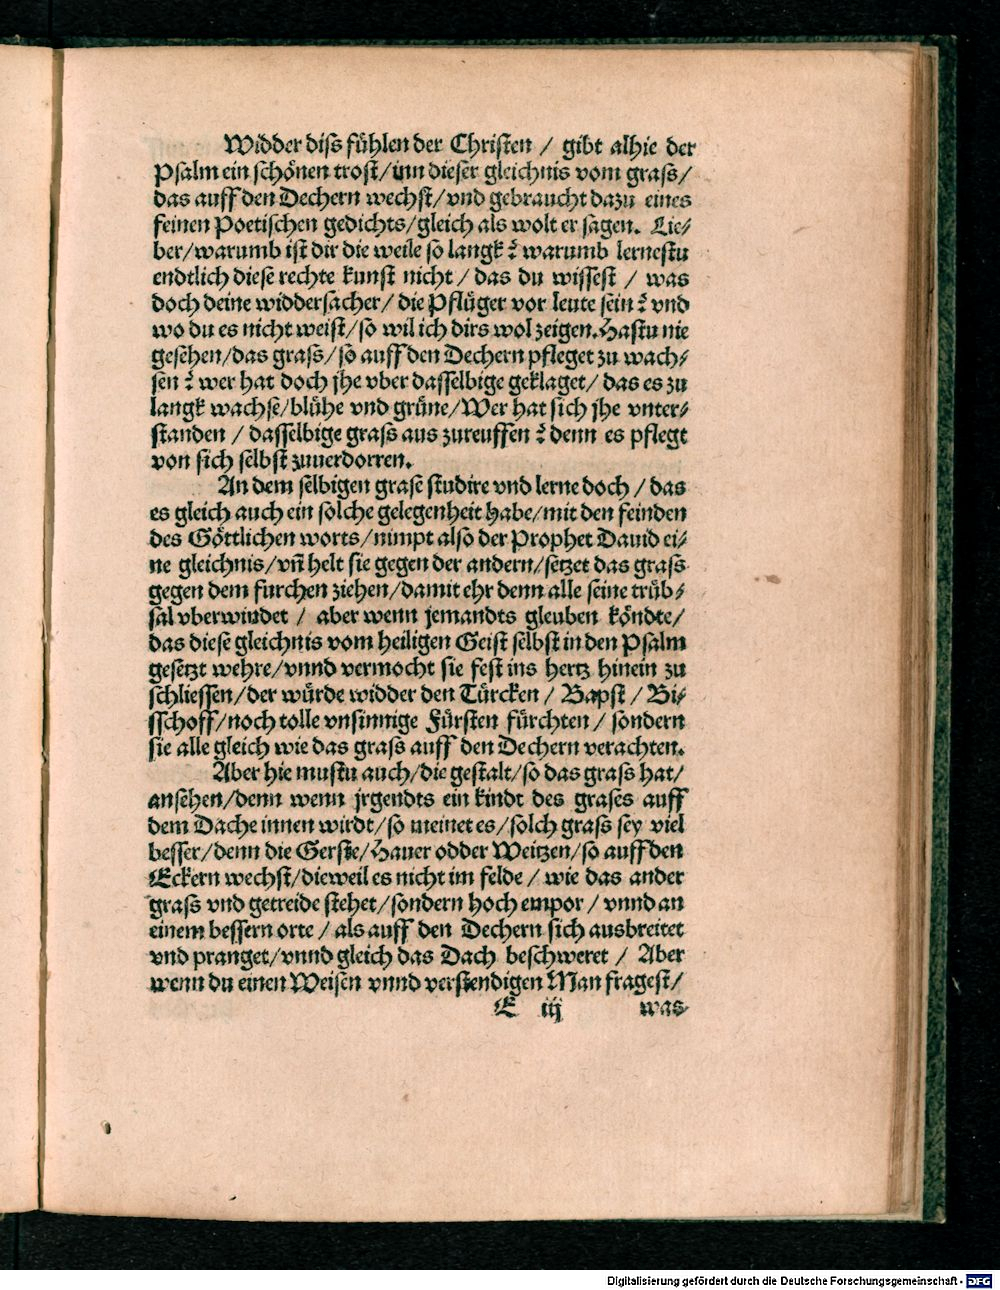 Widder diſs fühlen der Chriſten / gibt alhie der
Pſalm ein ſchönen troſt/ inn dieſer gleichnis vom graſs/
das auff den Dechern wechſt/ vnd gebraucht dazu eines
feinen Poetiſchen gedichts/ gleich als wolt er ſagen. Lie-
ber/ warumb iſt dir die weile ſo langk ? warumb lerneſtu
endtlich dieſe rechte kunſt nicht / das du wiſſeſt / was
doch deine widderſacher/ die Pflüger vor leute ſein ? vnd
wo du es nicht weiſt/ ſo wil ich dirs wol zeigen. Haſtu nie
geſehen/ das graſs/ ſo auff den Dechern pfleget zu wach-
ſen ? wer hat doch jhe vber daſſelbige geklaget/ das es zu
langk wachſe/ blühe vnd grüne/ Wer hat ſich jhe vnter-
ſtanden / daſſelbige graſs aus zureuffen ? denn es pflegt
von ſich ſelbſt zuuerdorren.
An dem ſelbigen graſe ſtudire vnd lerne doch / das
es gleich auch ein ſolche gelegenheit habe/ mit den feinden
des Göttlichen worts/ nimpt alſo der Prophet Dauid ei-
ne gleichnis/ vñ helt ſie gegen der andern/ ſetzet das graſs
gegen dem furchen ziehen/ damit ehr denn alle ſeine trüb-
ſal vberwindet / aber wenn jemandts gleuben köndte/
das dieſe gleichnis vom heiligen Geiſt ſelbſt in den Pſalm
geſetzt wehre/ vnnd vermocht ſie feſt ins hertz hinein zu
ſchlieſſen/ der würde widder den Türcken / Bapſt / Bi-
ſſchoff/ noch tolle vnſinnige Fürſten fürchten / ſondern
ſie alle gleich wie das graſs auff den Dechern verachten.
Aber hie muſtu auch/ die geſtalt/ ſo das graſs hat/
anſehen/ denn wenn jrgendts ein kindt des graſes auff
dem Dache innen wirdt/ ſo meinet es/ ſolch graſs ſey viel
beſſer/ denn die Gerſte/ Hauer odder Weitzen/ ſo auff den
Eckern wechſt/ dieweil es nicht im felde / wie das ander
graſs vnd getreide ſtehet/ ſondern hoch empor / vnnd an
einem beſſern orte / als auff den Dechern ſich ausbreitet
vnd pranget/ vnnd gleich das Dach beſchweret / Aber
wenn du einen Weiſen vnnd verſtendigen Man frageſt/
E iij was
Digitalisierung gefördert durch die Deutsche Forschungsgemeinschaft - DFG